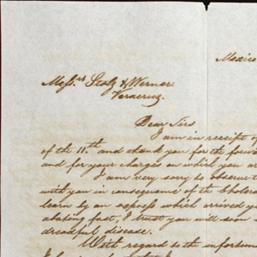 Mexico
Mess.rs Stolz & Werner
Veracruz.
Dear Sirs
I am in receipt o
of the 11.th and thank you for the forwa
and for your charges on which you a
I am very sorry to observe t
with you in consequence of the Cholera
learn by an express which arrived y
abating fast, I trust you will soon
dreadful disease.
With regard to the unfortun